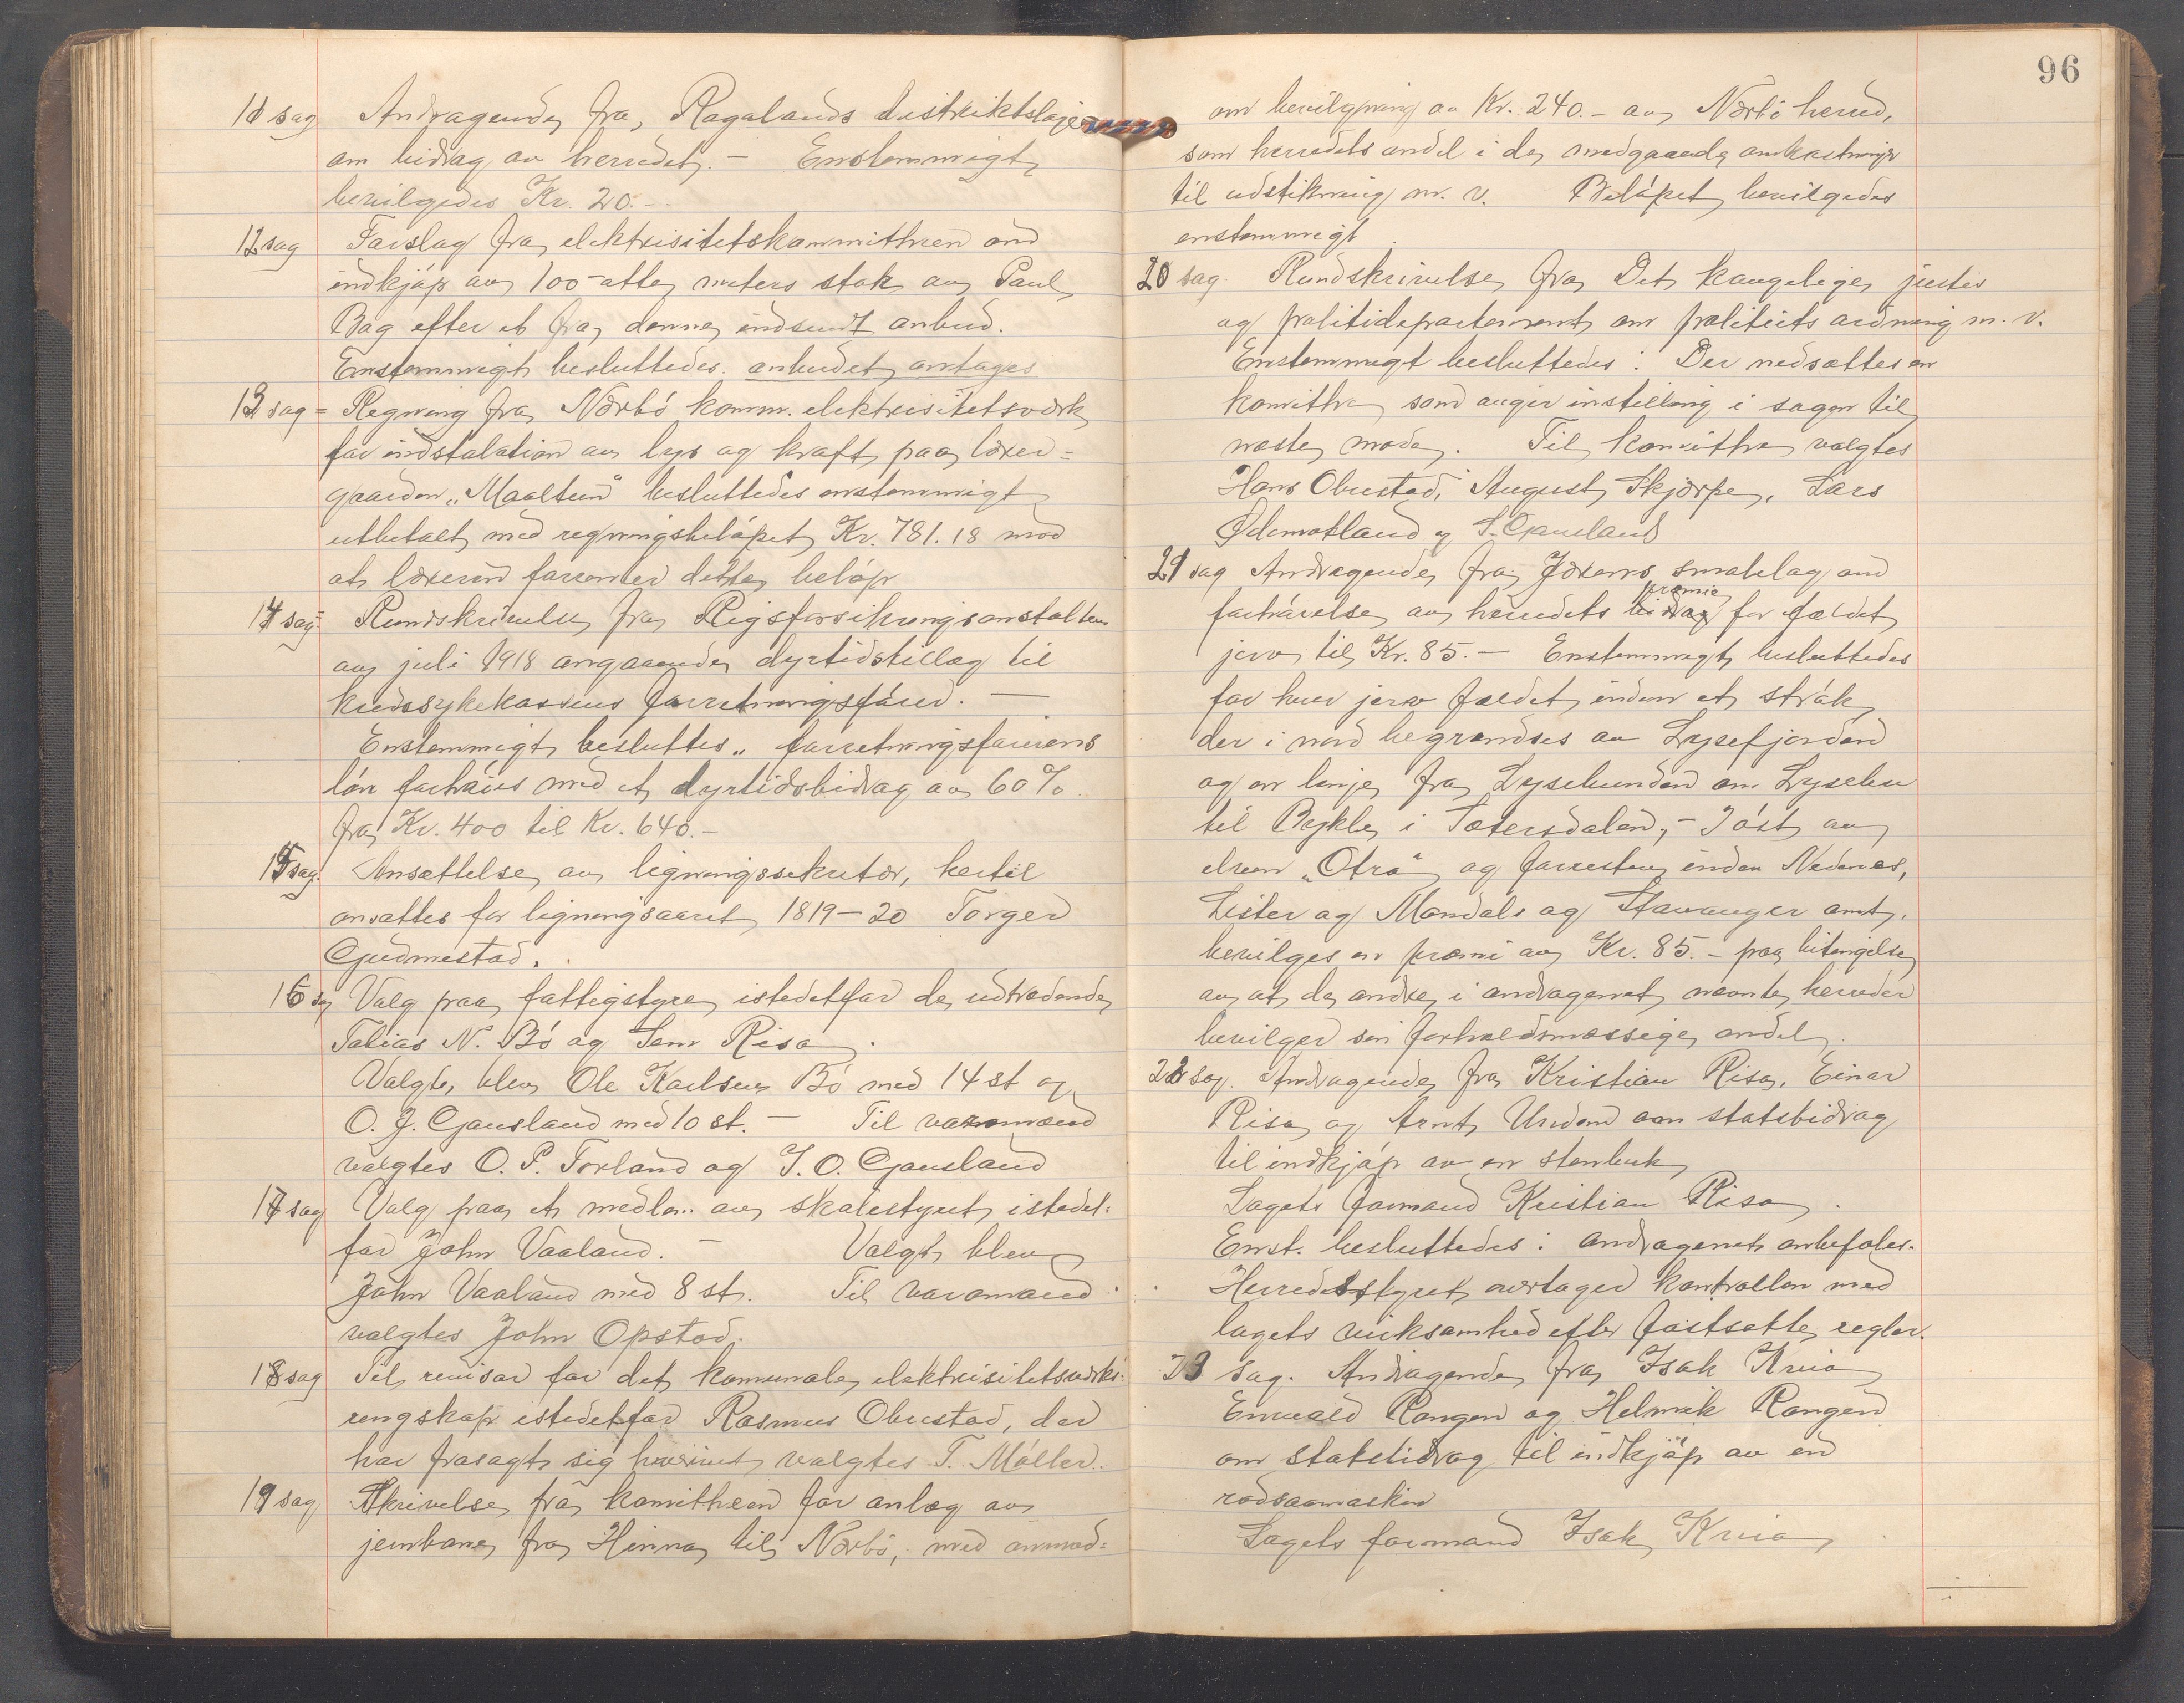 11 sag Andragende fra Rogalands distriktslage
om bidrag av herredet. - Enstemmigt
bevilgedes Kr. 20.-
12 sag Forslag fra elektrisitetskommitheen om
indkjøp av 100-otte meters stok av Paul
Bag efter et fra denne indsendt anbud.
Enstemmigt besluttedes. anbudet antages
13 sag = Regning fra Nærbø komm. elektrisitetsværk
for indstalation av lys og kraft paa lærer=
gaarden "Maaltun" besluttedes enstemmigt
utbetalt med regningsbeløpet Kr. 781.18 mod
at læreren forrenter dette beløp
14 sag- Rundskrivelse fra Rigsforsikringsanstalten
av juli 1918 angaaende dyrtidstillæg til
kredssykekassens forretningsfører. -
Enstemmigt besluttes " forretningsførerens
løn forhøies med et dyrtidsbidrag av 60 %
fra Kr. 400 til Kr. 640.-
15 sag. Ansættelse av ligningssekretær, hertil
ansattes for ligningsaaret 1819-20 Torger
Gudmestad.
16 sag Valg paa fattigstyre istedetfor de udtrædende
Tobias N. Bø og Sem Risa.
Valgt blev Ole Karlsen Bø med 14 st og
O. J. Gausland med 10 st. - Til varamænd
valgtes O. P. Torland og J. O. Gausland
17 sag Valg paa et medlem av skolestyret istedet=
for John Vaaland. - Valgt blev
John Vaaland med 8 st. Til varamand
valgtes John Opstad.
18 sag Til revisor for det komunale elektrisitetsværks
rengskap istedetfor Rasmus Obrestad, der
har frasagt sig hvervet valgtes T. Møller.
19 sag Skrivelse fra komitheen for anlæg av
jernbane fra Hinna til Nærbø, med anmod=
96
om bevilgning av Kr. 240.- av Nærbø herred,
som herredets andel i de medgaaende omkostninger
til udstikning m. v. Beløpet bevilgedes
enstemmigt.
20 sag. Rundskrivelse fra Det kongelige justis
og politidepartement om politiets ordning m. v.
Enstemmigt besluttedes: Der nedsættes en
komithe som avgir instilling i sagen til
næste møde. Til komithe valgtes
Hans Obrestad, August Skjærpe, Lars
Ødemotland og S. Gausland
21 sag Andragende fra Jærens smalelag om
forhøielse av herredets bidrag præmie for fældet
jerv til Kr. 85.- Enstemmigt besluttedes
for hver jerv fældet inden et strøk
der i nord begrændses av Lysefjorden
og en linje fra Lysebunden om Lysehei
til Bykle i Sætersdalen,- I øst av
elven "Otra" og forresten inden Nedenes,
Lister og Mandals og Stavanger amt,
bevilges en præmi av Kr. 85.- paa bitengelse
av at de andre i andragenet nævnte herreder
bevilger sin forholdsmæssige andel.
22 sag. Andragende fra Kristian Risa, Einar
Risa og Arnt Undem om statsbidrag
til indkjøp av en stenbuk
Lagets formand Kristian Risa.
Enst. besluttedes: andragenet anbefales.
Herredsstyret overtager kontrollen med
lagets virksomhed efter fastsatte regler.
23 sag. Andragende fra Isak Kvia
Enevald Rangen og Helmik Rangen
om statsbidrag til indkjøp av en
radsaamaskin
Lagets formand Isak Kvia